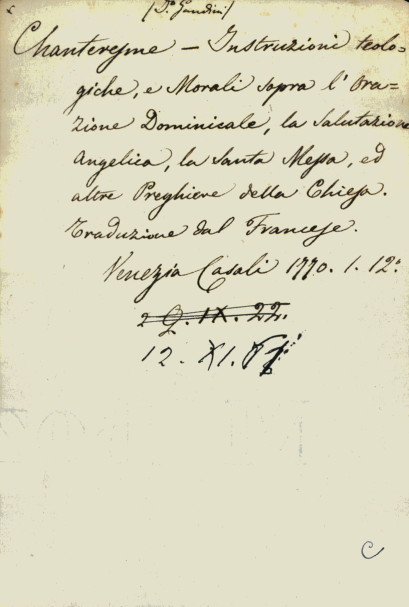 Chanteresme – Instruzioni teolo=
giche, e Morali sopra l'Ora=
zione Dominicale, la Salutazione
Angelica, la Santa Messa, ed
altre Preghiere della Chiesa.
Traduzione dal Francese.
Venezia Casali 1770. 1. 12.º
2 Q. IX. 22.
12. XI.
C